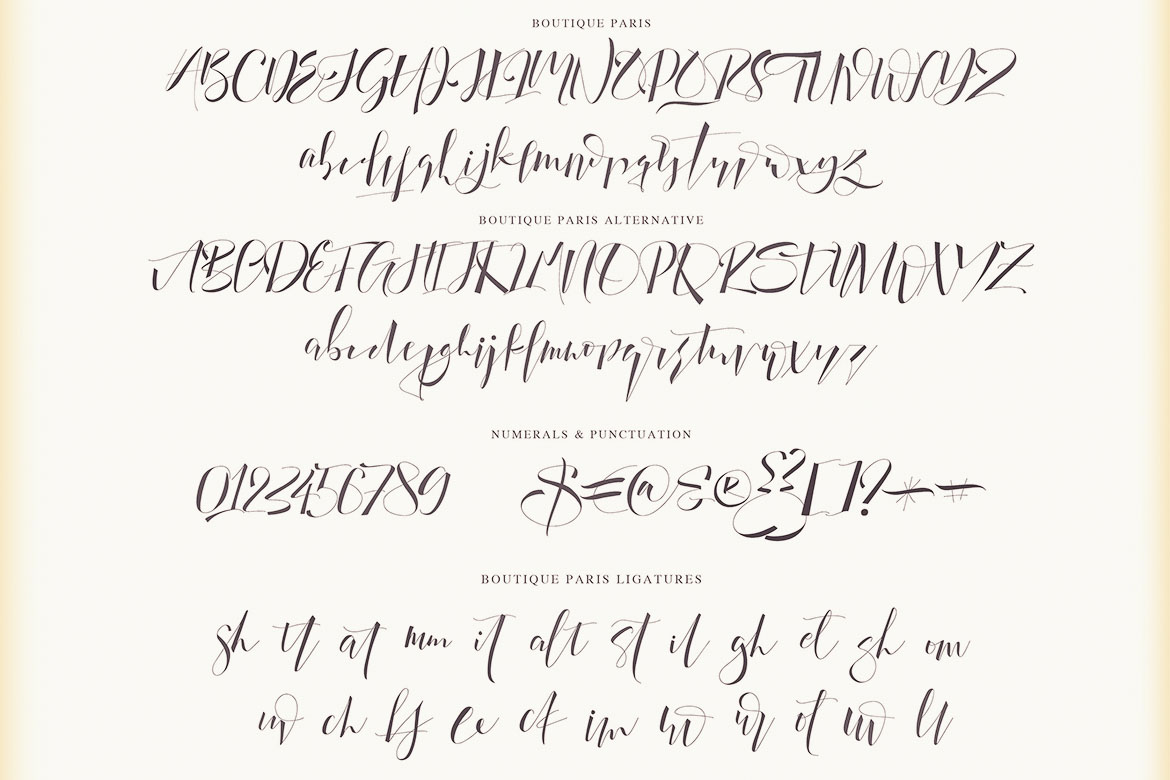 BOUTIQUE PARIS
ABCDEFGHIJKLMNOPQRSTUVWXYZ
abcdefghijklmnopqrstuvwxyz
BOUTIQUE PARIS ALTERNATIVE
ABCDEFGHIJKLMNOPQRSTUVWXYZ
abcdefghijklmnopqrstuvwxyz
NUMERALS & PUNCTUATION
0123456789 $€@&®{}[]?-*-#
BOUTIQUE PARIS LIGATURES
sh tt at mm it alt st il gh et sh om
ch ct im ur ot ll